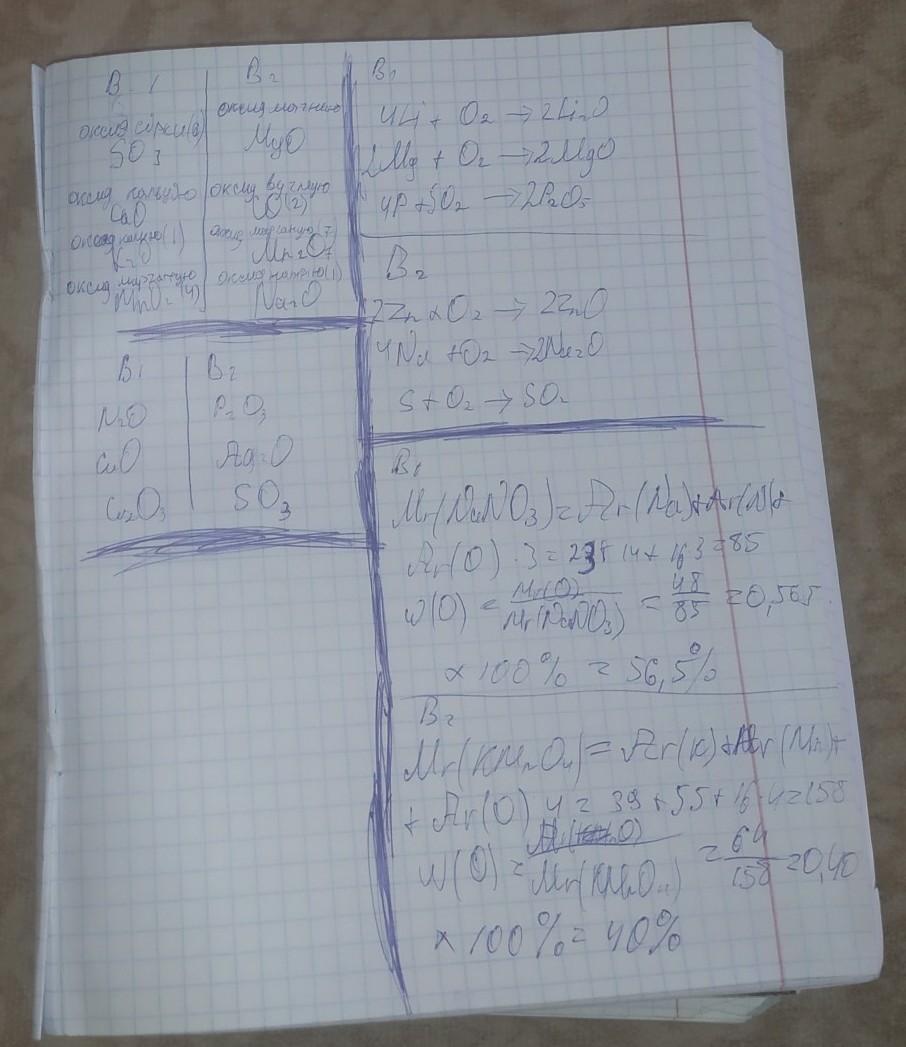 В 1
оксид сірки(6)
SO3
оксид кальцію
CaO
оксид калію(1)
K2O
оксид марганцю
MnO2 (4)
В2
оксид магнію
MgO
оксид вуглецю
CO(2)
оксид марганцю(7)
Mn2O7
оксид натрію(1)
Na2O
В1
N2O
CuO
В2
P2O3
Ag2O
SO3
В1
4Li + O2 → 2Li2O
2Mg + O2 → 2MgO
4P + 5O2 → 2P2O5
В2
2Zn + O2 → 2ZnO
4Na + O2 → 2Na2O
S + O2 → SO2
В1
Mr(NaNO3) = Ar(Na) + Ar(N) +
Ar(O) · 3 = 23 + 14 + 16 · 3 = 85
w(O) = Mr(O) / Mr(NaNO3) = 48 / 85 = 0,565
× 100% = 56,5%
В2
Mr(KMnO4) = Ar(K) + Ar(Mn) +
+ Ar(O) 4 = 39 + 55 + 16 · 4 = 158
w(O) = / Mr(KMnO4) = 64 / 158 = 0,40
× 100% = 40%